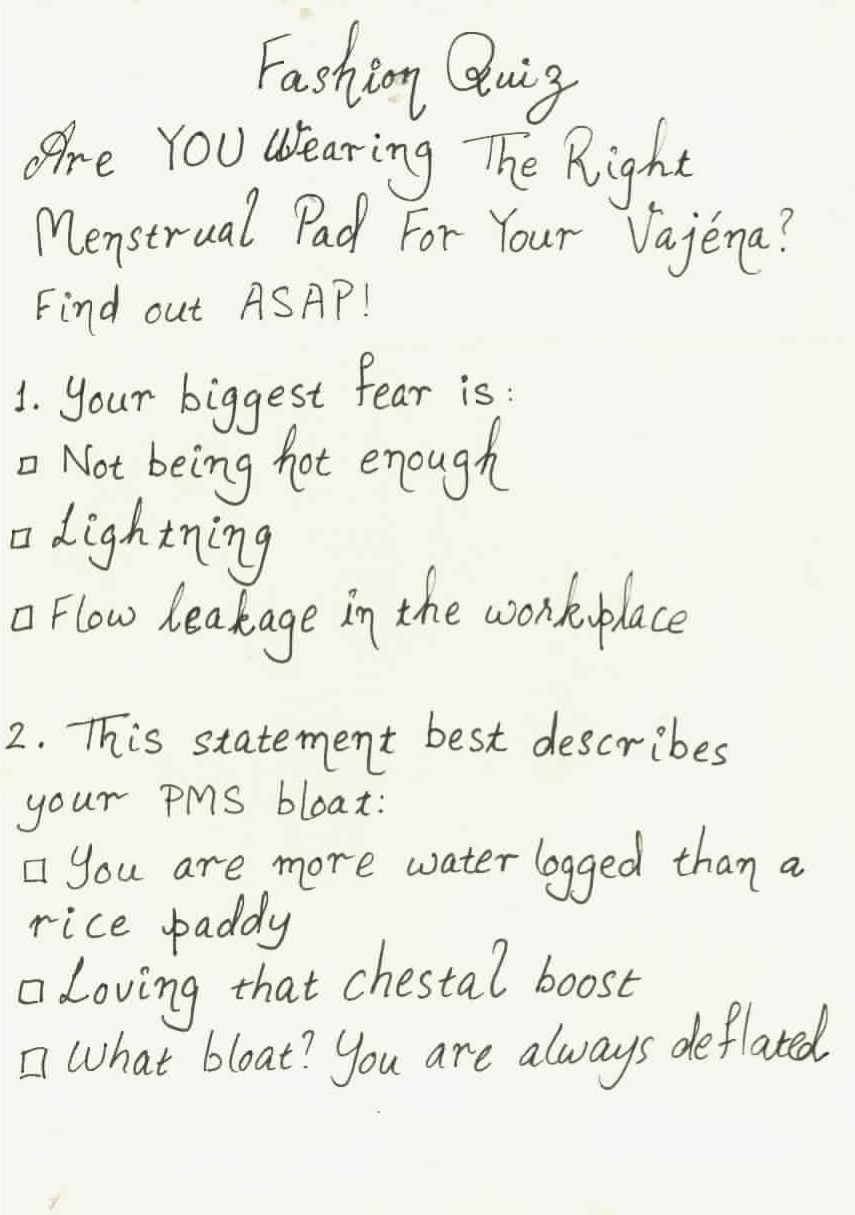 Fashion Quiz
Are YOU Wearing The Right
Menstrual Pad For Your Vajéna?
Find out ASAP!
1. Your biggest fear is:
□ Not being hot enough
□ Lightning
□ Flow leakage in the workplace
2. This statement best describes
your PMS bloat:
□ You are more water logged than a
rice paddy
□ Loving that chestal boost
□ What bloat? You are always deflated